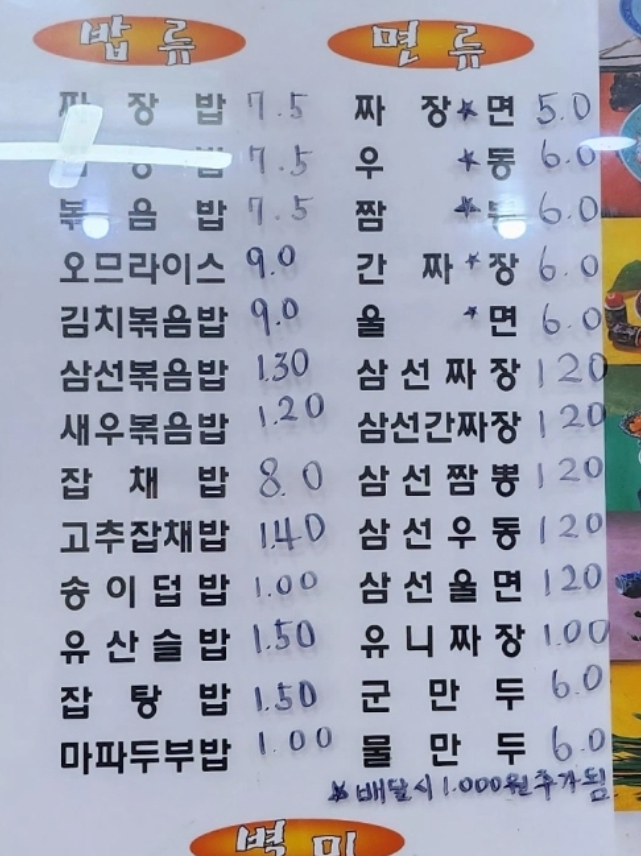 밥류
짜장밥 7.5
밥 7.5
볶음밥 7.5
오므라이스 9.0
김치볶음밥 9.0
삼선볶음밥 1.30
새우볶음밥 1.20
잡채밥 8.0
고추잡채밥 1.40
송이덥밥 1.00
유산슬밥 1.50
잡탕밥 1.50
마파두부밥 1.00
면류
짜장*면 5.0
우*동 6.0
짬* 6.0
간짜*장 6.0
울*면 6.0
삼선짜장 120
삼선간짜장 120
삼선짬뽕 120
삼선우동 120
삼선울면 120
유니짜장 1.00
군만두 6.0
물만두 6.0
*배달시 1.000원 추가됨